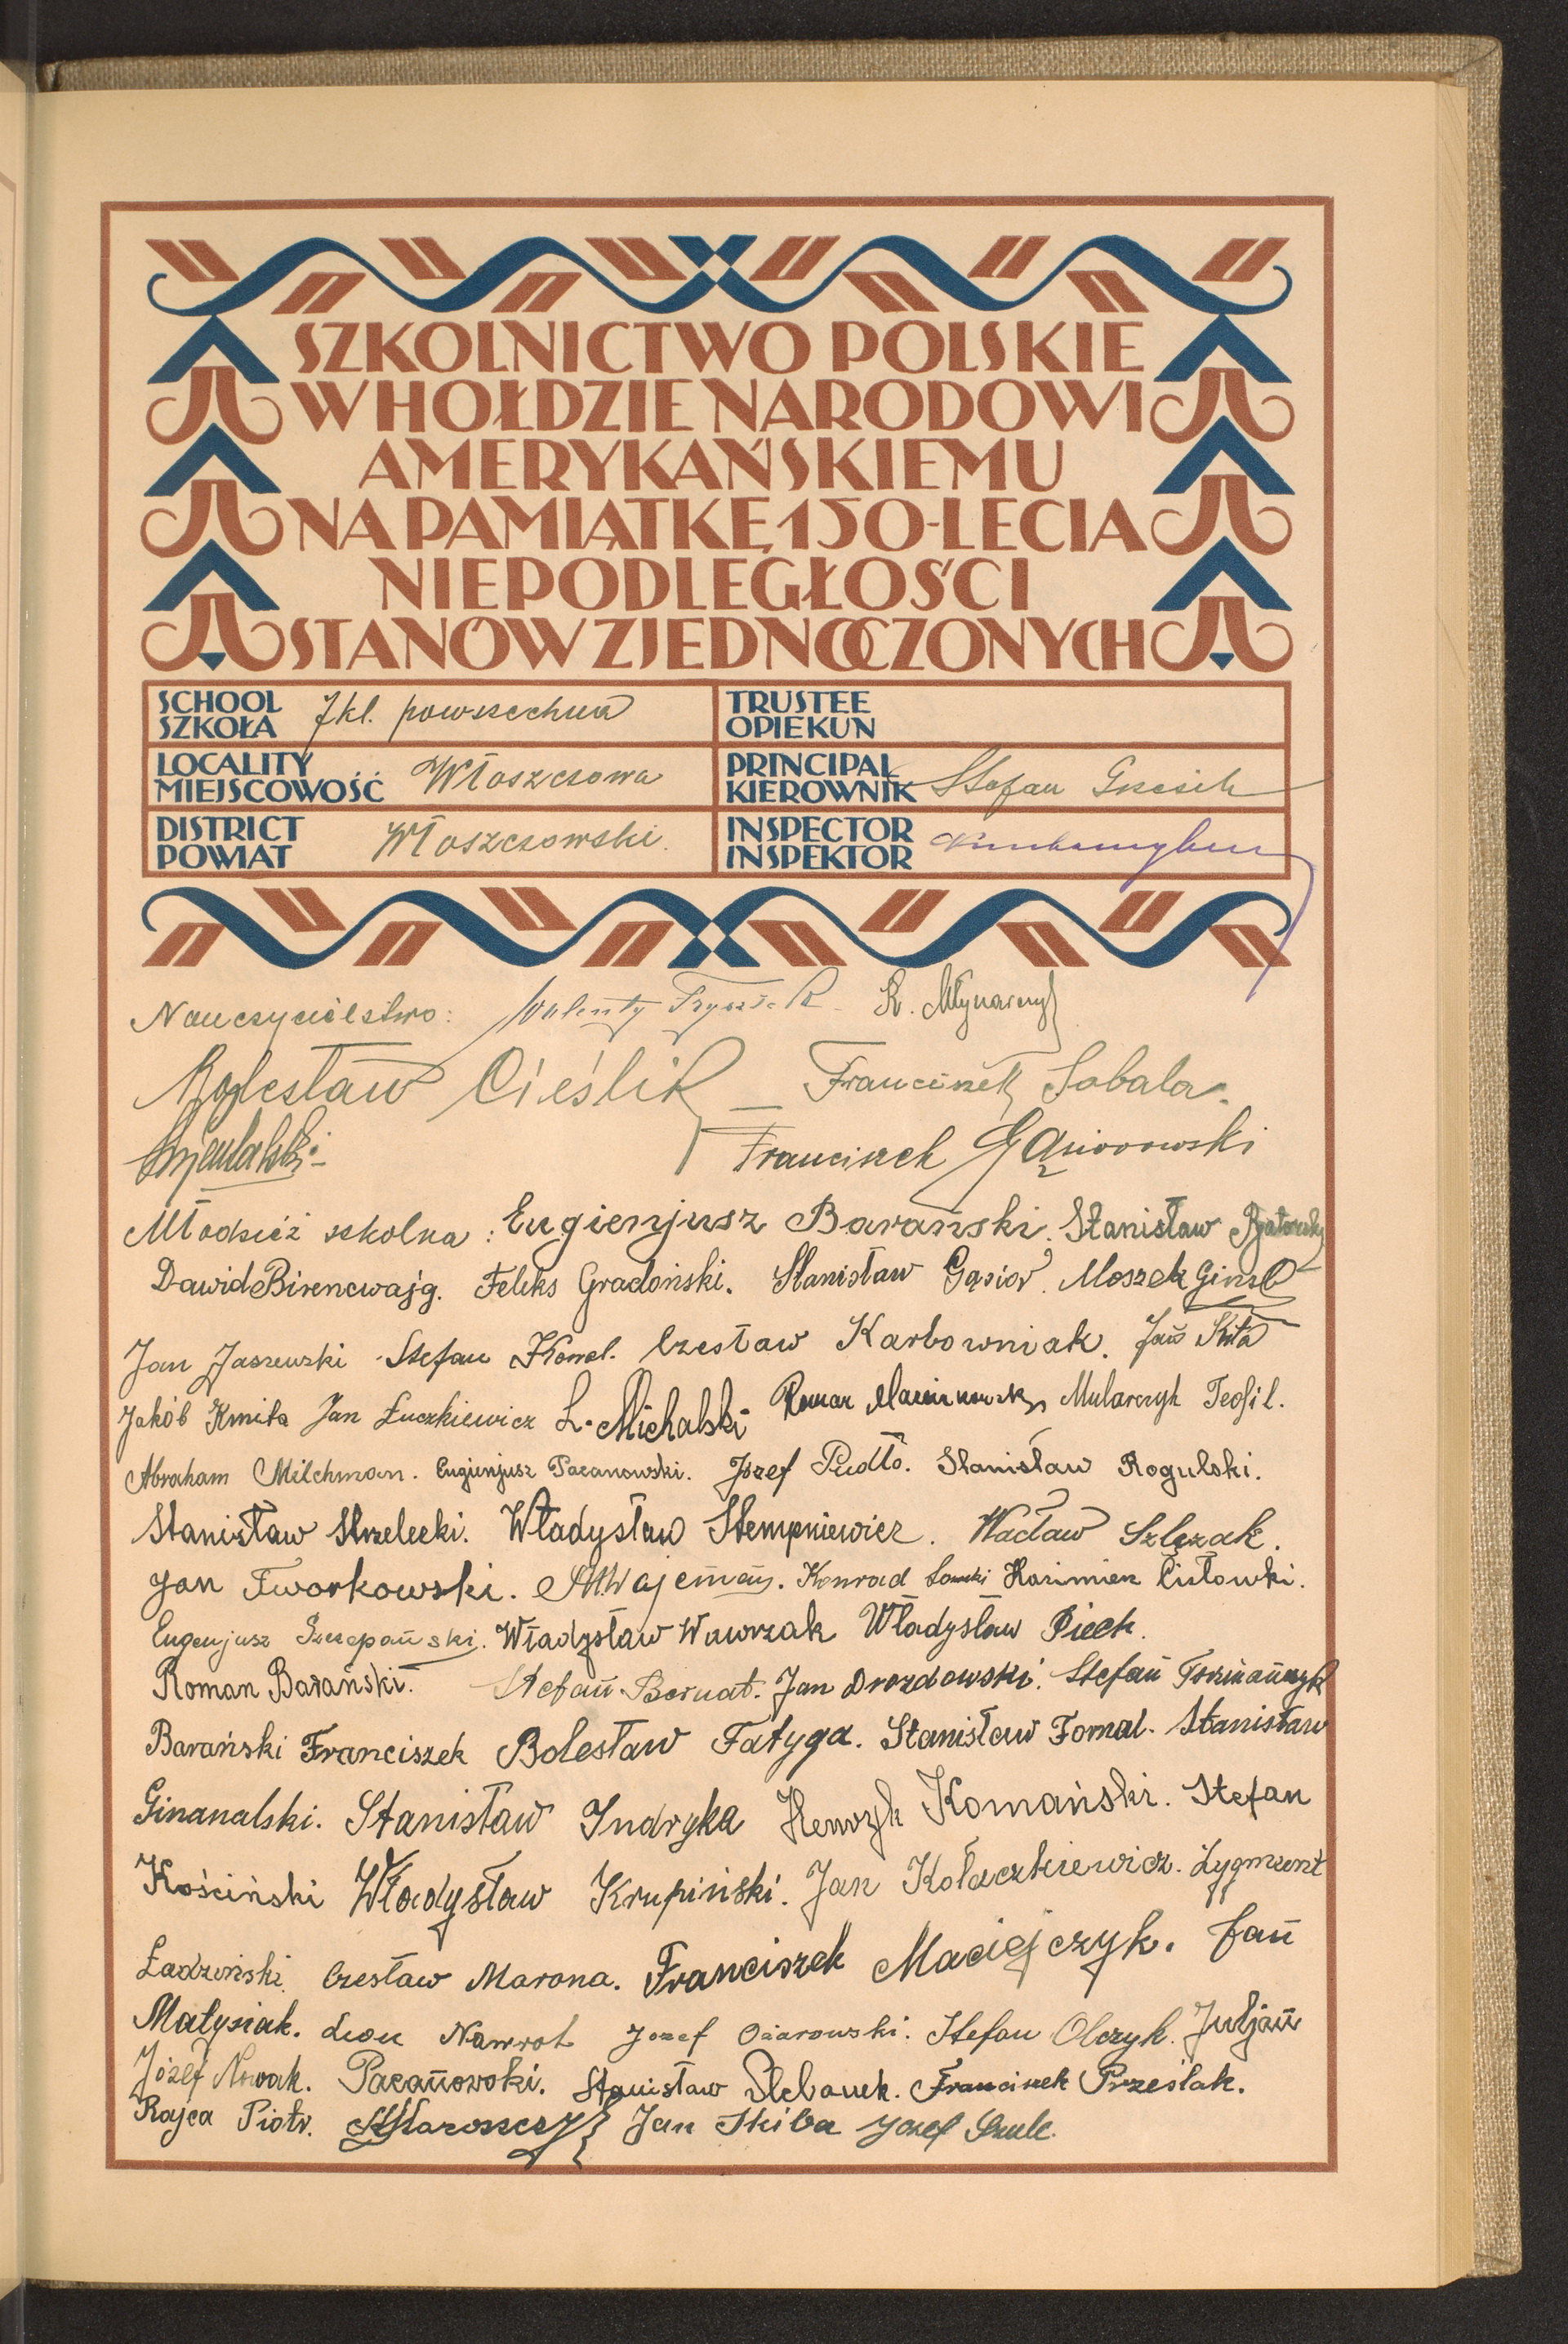 SZKOLNICTWO POLSKIE
W HOŁDZIE NARODOWI
AMERYKAŃSKIEMU
NA PAMIĄTKĘ 150-LECIA
NIEPODLEGŁOŚCI
STANÓW ZJEDNOCZONYCH
SCHOOL
SZKOŁA 7kl. powszechna
TRUSTEE
OPIEKUN
LOCALITY
MIEJSCOWOŚĆ Włoszczowa
PRINCIPAL
KIEROWNIK Stefan Grzesik
DISTRICT
POWIAT Włoszczowski.
INSPECTOR
INSPEKTOR
Nauczycielstwo: Walenty R. Młynarczyk
Bolesław Cieślik – Franciszek Sobala.
Franciszek Gąsiorowski
Młodzież szkolna: Eugienjusz Barański. Stanisław
Dawid Birencwajg. Feliks Gradoński. Stanisław Gąsior. Moszek Ginsb
Jan Jaszewski Stefan Kowal. Czesław Karbowniak. Jan
Jakób Kmita Jan Łuczkiewicz L. Michalski Roman Mularczyk Teofil.
Abraham Milchman. Eugienjusz Pacanowski. Józef Pudło. Stanisław Rogulski.
Stanisław Strzelecki. Władysław Stempniewicz. Wacław Szlęzak.
Jan Tworkowski. Konrad Kazimierz Cisłowski.
Eugenjusz Szczepański. Władysław Wawrzak Władysław Piech.
Roman Barański. Stefan Bernat. Jan Drozdowski. Stefan
Barański Franciszek Bolesław Fatyga. Stanisław Fornal. Stanisław
Ginanalski. Stanisław Indryka Henryk Komański. Stefan
Kościński Władysław Krupiński. Jan Kołaczkiewicz. Zygmunt
Ładziński. Czesław Marona. Franciszek Maciejczyk. Jan
Małysiak. Leon Nawrot Józef Ożarowski. Stefan Olczyk. Juljan
Józef Nowak. Pacanowski. Stanisław Plebanek. Franciszek Prześlak.
Rajca Piotr. Jan Skiba Józef Szulc.